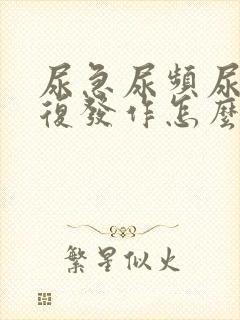 尿急尿頻尿
復發作怎麼
繁星似火